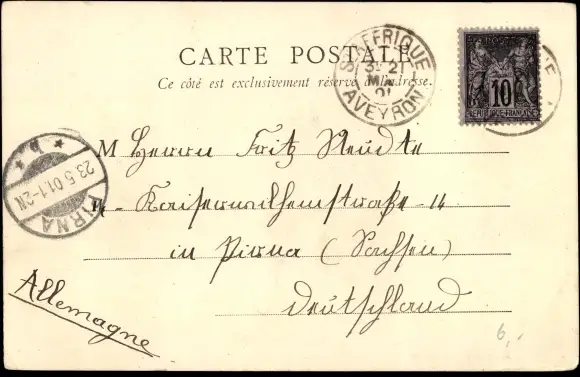 CARTE POSTALE
Ce côté est exclusivement réservé à l'adresse.
ST AFFRIQUE
3E 21
MAI
01
AVEYRON
10
REPUBLIQUE FRANÇAISE
M Herrn Fritz Neudte
14 - Kaiserwilhemstraße - 14
in Pirna (Sachsen)
Deutschland
Allemagne
PIRNA
23.5.01.1-2N
6,-